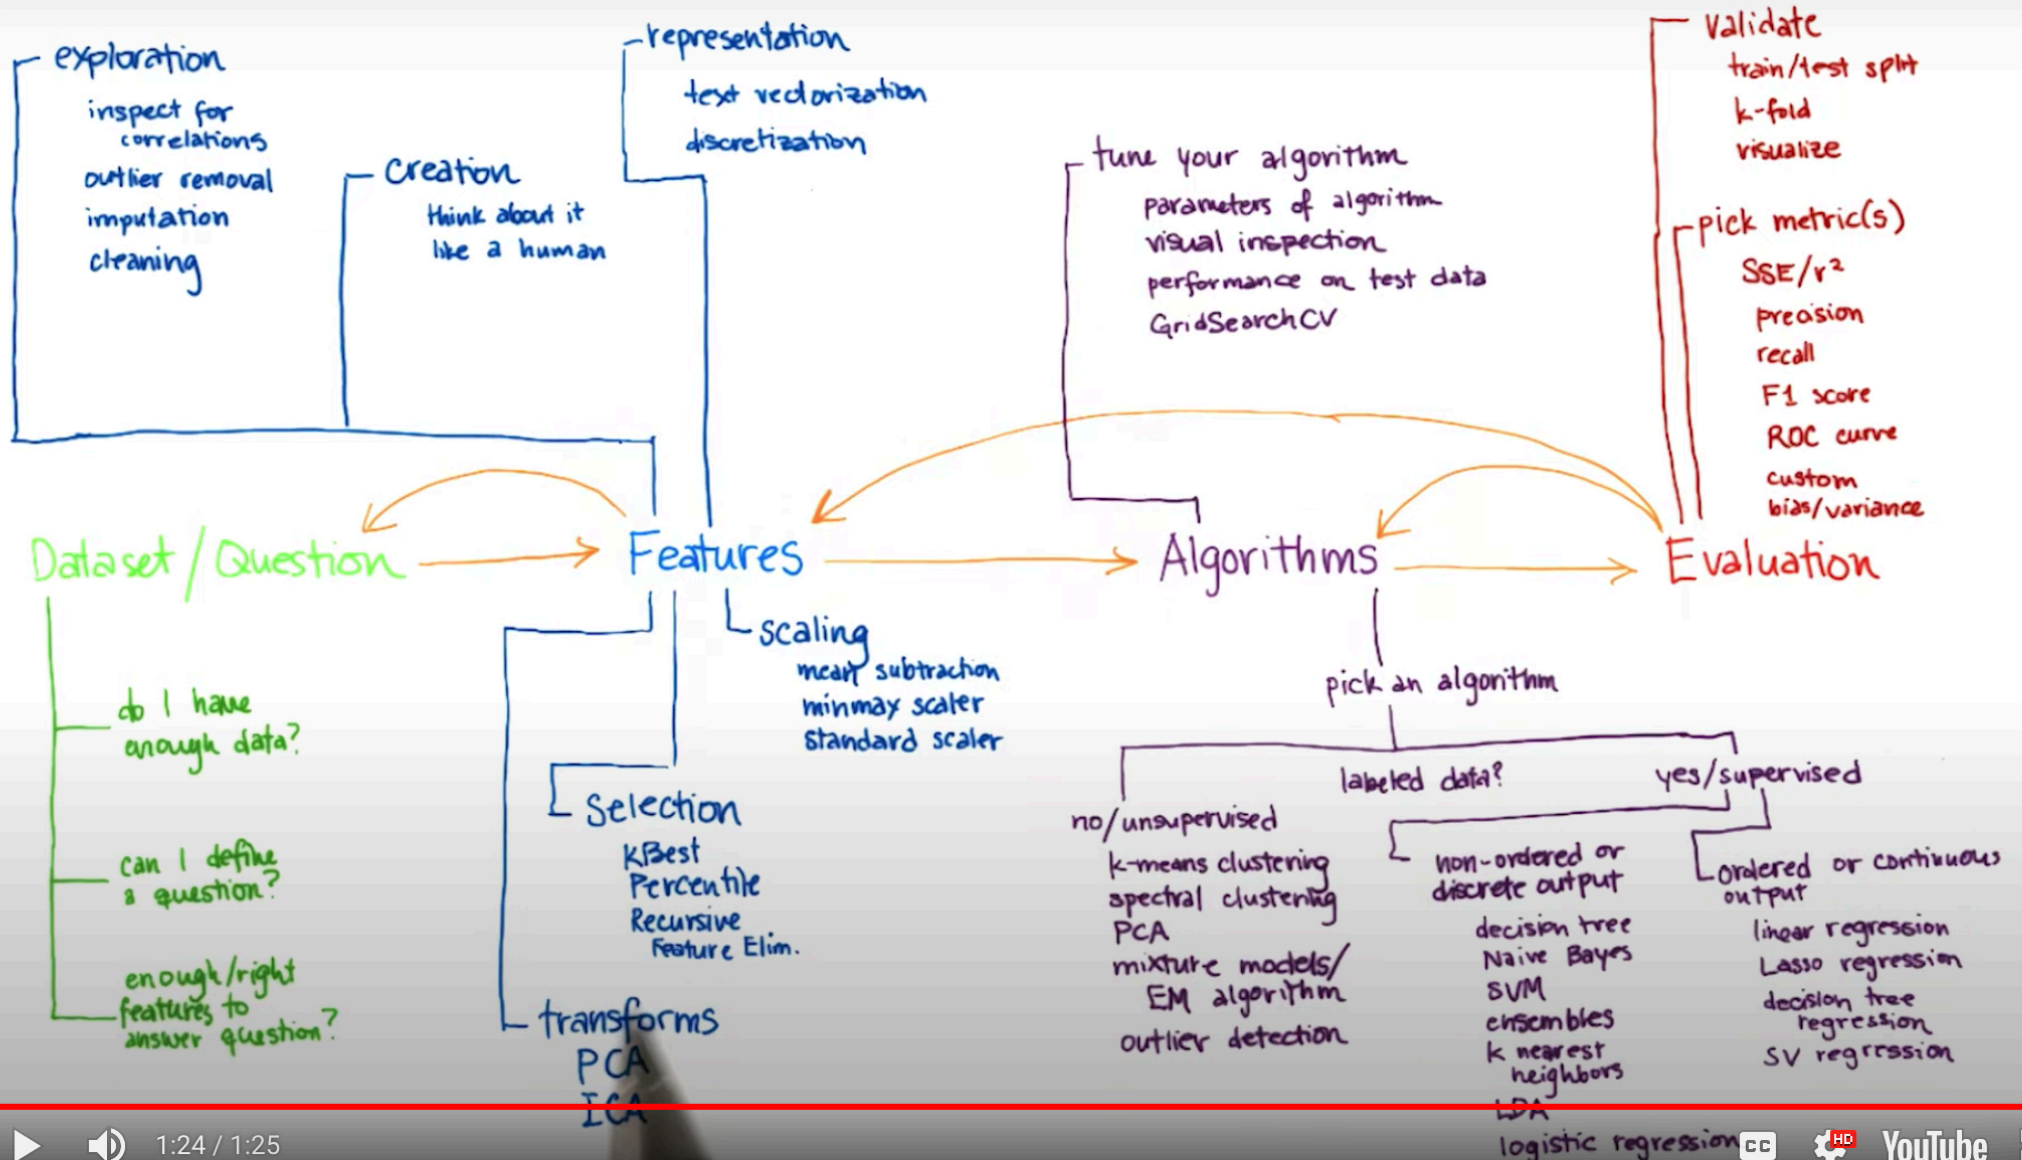 exploration
inspect for
correlations
outlier removal
imputation
cleaning
creation
think about it
like a human
representation
text vectorization
discretization
tune your algorithm
parameters of algorithm
visual inspection
performance on test data
GridSearchCV
validate
train/test split
k-fold
visualize
pick metric(s)
SSE/r²
precision
recall
F1 score
ROC curve
custom
bias/variance
Dataset/Question
Features
Algorithms
Evaluation
do I have
enough data?
can I define
a question?
enough/right
features to
answer question?
scaling
mean subtraction
minmax scaler
standard scaler
Selection
KBest
Percentile
Recursive
Feature Elim.
transforms
PCA
ICA
pick an algorithm
labeled data?
no/unsupervised
k-means clustering
spectral clustering
PCA
mixture models/
EM algorithm
outlier detection
yes/supervised
non-ordered or
discrete output
decision tree
Naive Bayes
SVM
ensembles
k nearest
neighbors
LDA
logistic regression
ordered or continuous
output
linear regression
Lasso regression
decision tree
regression
SV regression
1:24 / 1:25
CC
HD
YouTube